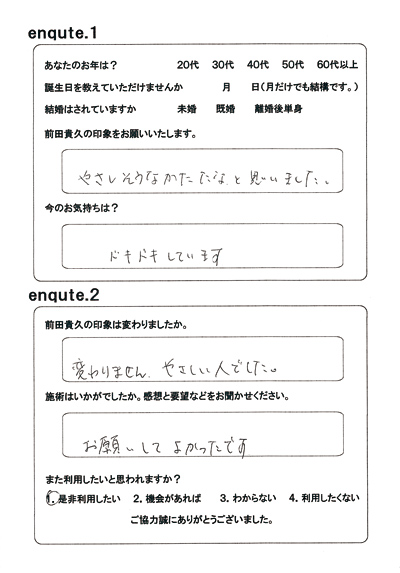 enqute.1
あなたのお年は？ 20代 30代 40代 50代 60代以上
誕生日を教えていただけませんか 月 日（月だけでも結構です。）
結婚はされていますか 未婚 既婚 離婚後単身
前田貴久の印象をお願いいたします。
やさしそうなかただな と思いました。
今のお気持ちは？
ドキドキしています
enqute.2
前田貴久の印象は変わりましたか。
変わりません. やさしい人でした。
施術はいかがでしたか。感想と要望などをお聞かせください。
お願いして よかったです
また利用したいと思われますか？
1. 是非利用したい 2. 機会があれば 3. わからない 4. 利用したくない
ご協力誠にありがとうございました。